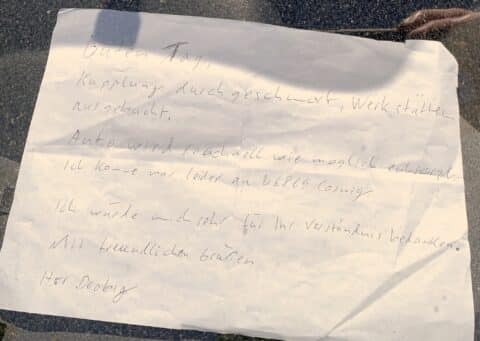 Guten Tag,
Kupplung durchgeschmort, Werkstätten
ausgebucht.
Auto wird so schnell wie möglich
Ich komme nur leider an 06869 Coswig
Ich würde mich sehr für Ihr Verständnis bedanken.
Mit freundlichen Grüßen